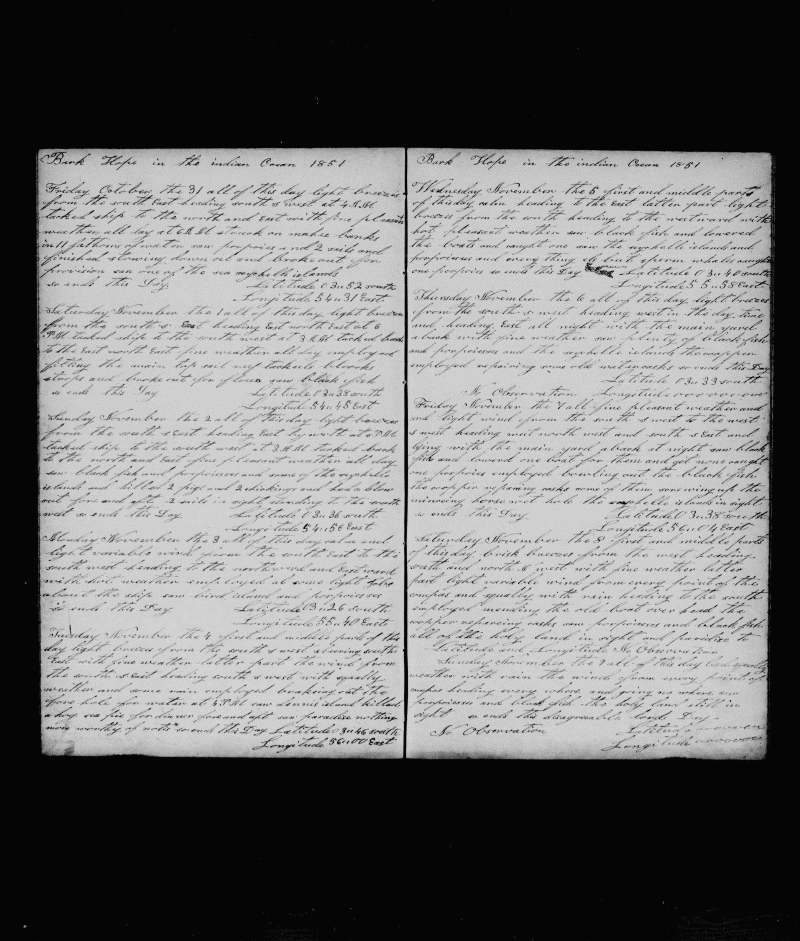 Bark Hope in the indian Ocean 1851
Friday October the 31 all of this day light breezes
from the south East heading south s west at 4 P.M.
tacked ship to the north and East with fine pleasant
weather all day at 6 A.M. struck on mahee banks
in 11 fathoms of water saw porpoies and 2 sails and
finished stowing down oil and broke out for
provision saw one of the sea myshells islands
so ends this Day Latitude 03 " 52 south
Longitude 54 " 31 East
Saturday November the 1 all of this day light breezes
from the south s East heading East north East at 6
P.M. tacked ship to the south west at 3 A.M. tacked back
to the East north East fine weather all day employed
fitting the main top sail reef tackle blocks
strops and broke out for flour saw black fish
so ends this Day Latitude 03 " 38 south
Longitude 54 " 45 East
Sunday November the 2 all of this day light breezes
from the south s East heading East by north at 4 P.M.
tacked ship to the south west at 3 A.M. tacked back
to the north and East fine pleasant weather all day
saw black fish and porpoieses and some of the myshells
islands and killed 2 pigs and 2 chickings and had a blow
out fore and aft 2 sails in sight standing to the south
west so ends this Day Latitude 03 " 36 south
Longitude 54 " 56 East
Monday November the 3 all of this day calm and
light variable wind from the south East to the
south west heading to the northward and Eastward
with hot weather employed at some light jobs
about the ship saw bird island and porpoieses
so ends this Day Latitude 03 " 26 south
Longitude 55 " 40 East
Tuesday November the 4 first and middle parts of this
day light breezes from the south s west steering south
East with fine weather latter part the wind from
the south s East heading south s west with squally
weather and some rain employed breaking out the
fore hole for water at 4 P.M. saw dennis island killed
a hog sea pie for dinner fore and aft saw paradise nothing
more worthy of note so ends this Day Latitude 03 " 46 south
Longitude 56 " 00 East
Bark Hope in the indian Ocean 1851
Wednesday November the 5 first and middle parts
of this day calm heading to the East latter part light
breezes from the south heading to the westward with
hot pleasant weather saw black fish and lowered
the boats and caught one saw the myshells islands and
porpoieses and every thing but sperm whales caught
one porpoies so ends this Day Latitude 03 " 40 south
Longitude 55 " 38 East
Thursday November the 6 all of this day light breezes
from the south s west heading west in the day time
and heading East all night with the main yard
aback with fine weather saw plenty of black fish
and porpoieses and the myshells islands the cooper
employed repairing some old water casks so ends this Day
Latitude 03 " 33 south
No Observation Longitude 00000000
Friday November the 7 all fine pleasant weather and
and light wind from the south s west to the west
s west heading west north west and south s East and
lying with the main yard aback at night saw black
fish and lowered one boat for them and got none caught
one porpoies employed bowling out the black fish
the cooper reparing casks some of them screwing up the
mincing horse mast hole the myshells islands in sight
so ends this Day Latitude 03 " 38 south
Longitude 56 " 04 East
Saturday November the 8 first and middle parts
of this day brisk breezes from the west heading
south and north N west with fine weather latter
part light variable wind from every point of the
compas and squally with rain heading to the south
employed mending the old boat over head the
cooper repareing casks saw porpoieses and black fish
all of the holy land in sight and paradise to
Latitude and Longitude No Observation
Sunday November the 9 all of this day bad squally
weather with rain the wind from every point of
compas heading every where and going no where saw
porpoieses and black fish the holy land still in
sight so ends the disagreeable lords Day
No Observation Latitude 000000
Longitude 0000000